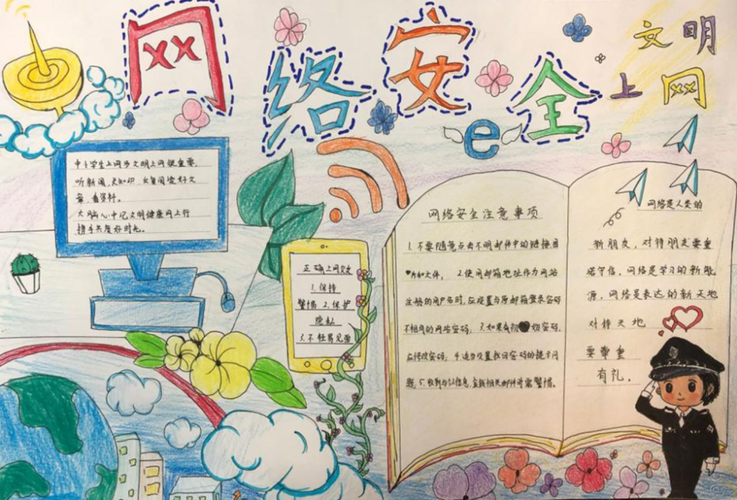 网络安全
文明
上网
e
中小学生上网步文明上网很重要,
听新闻,
文
章,查资料。
大脑心中记文明健康网上行
携手共度好时光。
正确上网
1.保持
警惕 2.保护
隐私
3.不轻易见面
网络安全注意事项
1.不要随意点击不明邮件中的链接
片和文件。 2.使用邮箱地址作为网站
注册的用户名时,应设置与原邮箱登录密码
不相同的网站密码。3.如果有初始密码,
应修改密码。4.适当设置找回密码的提示问
题。5.收到与个人信息、金钱相关邮件时需警惕。
网络是人类的
新朋友,对待朋友要重
诺守信。网络是学习的新能
源,网络是表达的新天地
对待天地
要尊重
有礼。